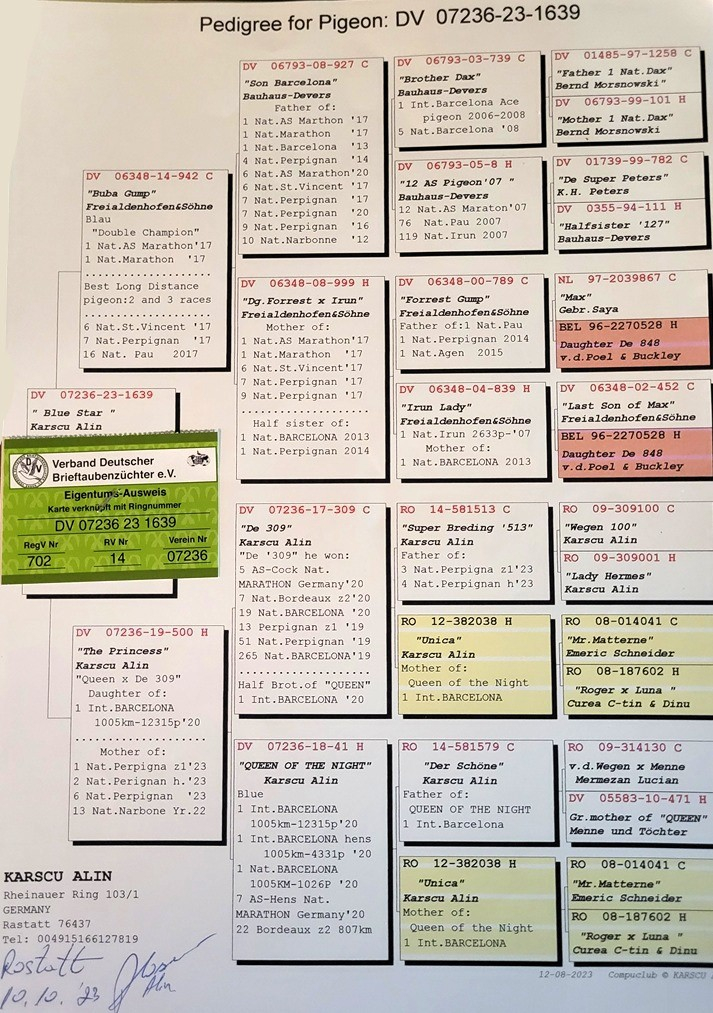 Pedigree for Pigeon: DV 07236-23-1639
DV 07236-23-1639
" Blue Star "
Karscu Alin
Verband Deutscher
Brieftaubenzüchter e.V.
Eigentums-Ausweis
Karte verknüpft mit Ringnummer
DV 07236 23 1639
RegV Nr
RV Nr
Verein Nr
702
14
07236
DV 06348-14-942 C
"Buba Gump"
Freialdenhofen&Söhne
Blau
"Double Champion"
1 Nat.AS Marathon'17
1 Nat.Marathon '17
...................
Best Long Distance
pigeon:2 and 3 races
...................
6 Nat.St.Vincent '17
7 Nat.Perpignan '17
16 Nat. Pau 2017
DV 07236-19-500 H
"The Princess"
Karscu Alin
"Queen x De 309"
Daughter of:
1 Int.BARCELONA
1005km-12315p'20
...................
Mother of:
1 Nat.Perpigna z1'23
2 Nat.Perignan h.'23
6 Nat.Perpignan '23
13 Nat.Narbone Yr.22
DV 06793-08-927 C
"Son Barcelona"
Bauhaus-Devers
Father of:
1 Nat.AS Marthon '17
1 Nat.Marathon '17
1 Nat.Barcelona '13
4 Nat.Perpignan '14
6 Nat.AS Marathon'20
6 Nat.St.Vincent '17
7 Nat.Perpignan '17
7 Nat.Perpignan '20
9 Nat.Perpignan '16
10 Nat.Narbonne '12
DV 06348-08-999 H
"Dg.Forrest x Irun"
Freialdenhofen&Söhne
Mother of:
1 Nat.AS Marathon'17
1 Nat.Marathon '17
6 Nat.St.Vincent'17
7 Nat.Perpignan '17
9 Nat.Perpignan '17
...................
Half sister of:
1 Nat.BARCELONA 2013
1 Nat.Perpignan 2014
DV 07236-17-309 C
"De 309"
Karscu Alin
"De '309" he won:
5 AS-Cock Nat.
MARATHON Germany'20
7 Nat.Bordeaux z2'20
19 Nat.BARCELONA '20
13 Perpignan z1 '19
51 Nat.Perpignan '19
265 Nat.BARCELONA'19
...................
Half Brot.of "QUEEN"
1 Int.BARCELONA '20
DV 07236-18-41 H
"QUEEN OF THE NIGHT"
Karscu Alin
Blue
1 Int.BARCELONA
1005km-12315p'20
1 Int.BARCELONA hens
1005km-4331p '20
1 Nat.BARCELONA
1005KM-1026P '20
7 AS-Hens Nat.
MARATHON Germany'20
22 Bordeaux z2 807km
DV 06793-03-739 C
"Brother Dax"
Bauhaus-Devers
1 Int.Barcelona Ace
pigeon 2006-2008
5 Nat.Barcelona '08
DV 06793-05-8 H
"12 AS Pigeon'07 "
Bauhaus-Devers
12 Nat.AS Maraton'07
76 Nat.Pau 2007
119 Nat.Irun 2007
DV 06348-00-789 C
"Forrest Gump"
Freialdenhofen&Söhne
Father of:1 Nat.Pau
1 Nat.Perpignan 2014
1 Nat.Agen 2015
DV 06348-04-839 H
"Irun Lady"
Freialdenhofen&Söhne
1 Nat.Irun 2633p-'07
Mother of:
1 Nat.BARCELONA 2013
RO 14-581513 C
"Super Breding '513"
Karscu Alin
Father of:
3 Nat.Perpigna z1'23
4 Nat.Perpignan h'23
RO 12-382038 H
"Unica"
Karscu Alin
Mother of:
Queen of the Night
1 Int.BARCELONA
RO 14-581579 C
"Der Schöne"
Karscu Alin
Father of:
QUEEN OF THE NIGHT
1 Int.Barcelona
RO 12-382038 H
"Unica"
Karscu Alin
Mother of:
Queen of the Night
1 Int.BARCELONA
DV 01485-97-1258 C
"Father 1 Nat.Dax"
Bernd Morsnowski"
DV 06793-99-101 H
"Mother 1 Nat.Dax"
Bernd Morsnowski
DV 01739-99-782 C
"De Super Peters"
K.H. Peters
DV 0355-94-111 H
"Halfsister '127"
Bauhaus-Devers
NL 97-2039867 C
"Max"
Gebr.Saya
BEL 96-2270528 H
Daughter De 848
v.d.Poel & Buckley
DV 06348-02-452 C
"Last Son of Max"
Freialdenhofen&Söhne
BEL 96-2270528 H
Daughter De 848
v.d.Poel & Buckley
RO 09-309100 C
"Wegen 100"
Karscu Alin
RO 09-309001 H
"Lady Hermes"
Karscu Alin
RO 08-014041 C
"Mr.Matterne"
Emeric Schneider
RO 08-187602 H
"Roger x Luna "
Curea C-tin & Dinu
RO 09-314130 C
v.d.Wegen x Menne
Mermezan Lucian
DV 05583-10-471 H
Gr.mother of "QUEEN"
Menne und Töchter
RO 08-014041 C
"Mr.Matterne"
Emeric Schneider
RO 08-187602 H
"Roger x Luna "
Curea C-tin & Dinu
KARSCU ALIN
Rheinauer Ring 103/1
GERMANY
Rastatt 76437
Tel: 004915166127819
Rastatt
10.10.'23
Alin
12-08-2023 Compuclub © KARSCU